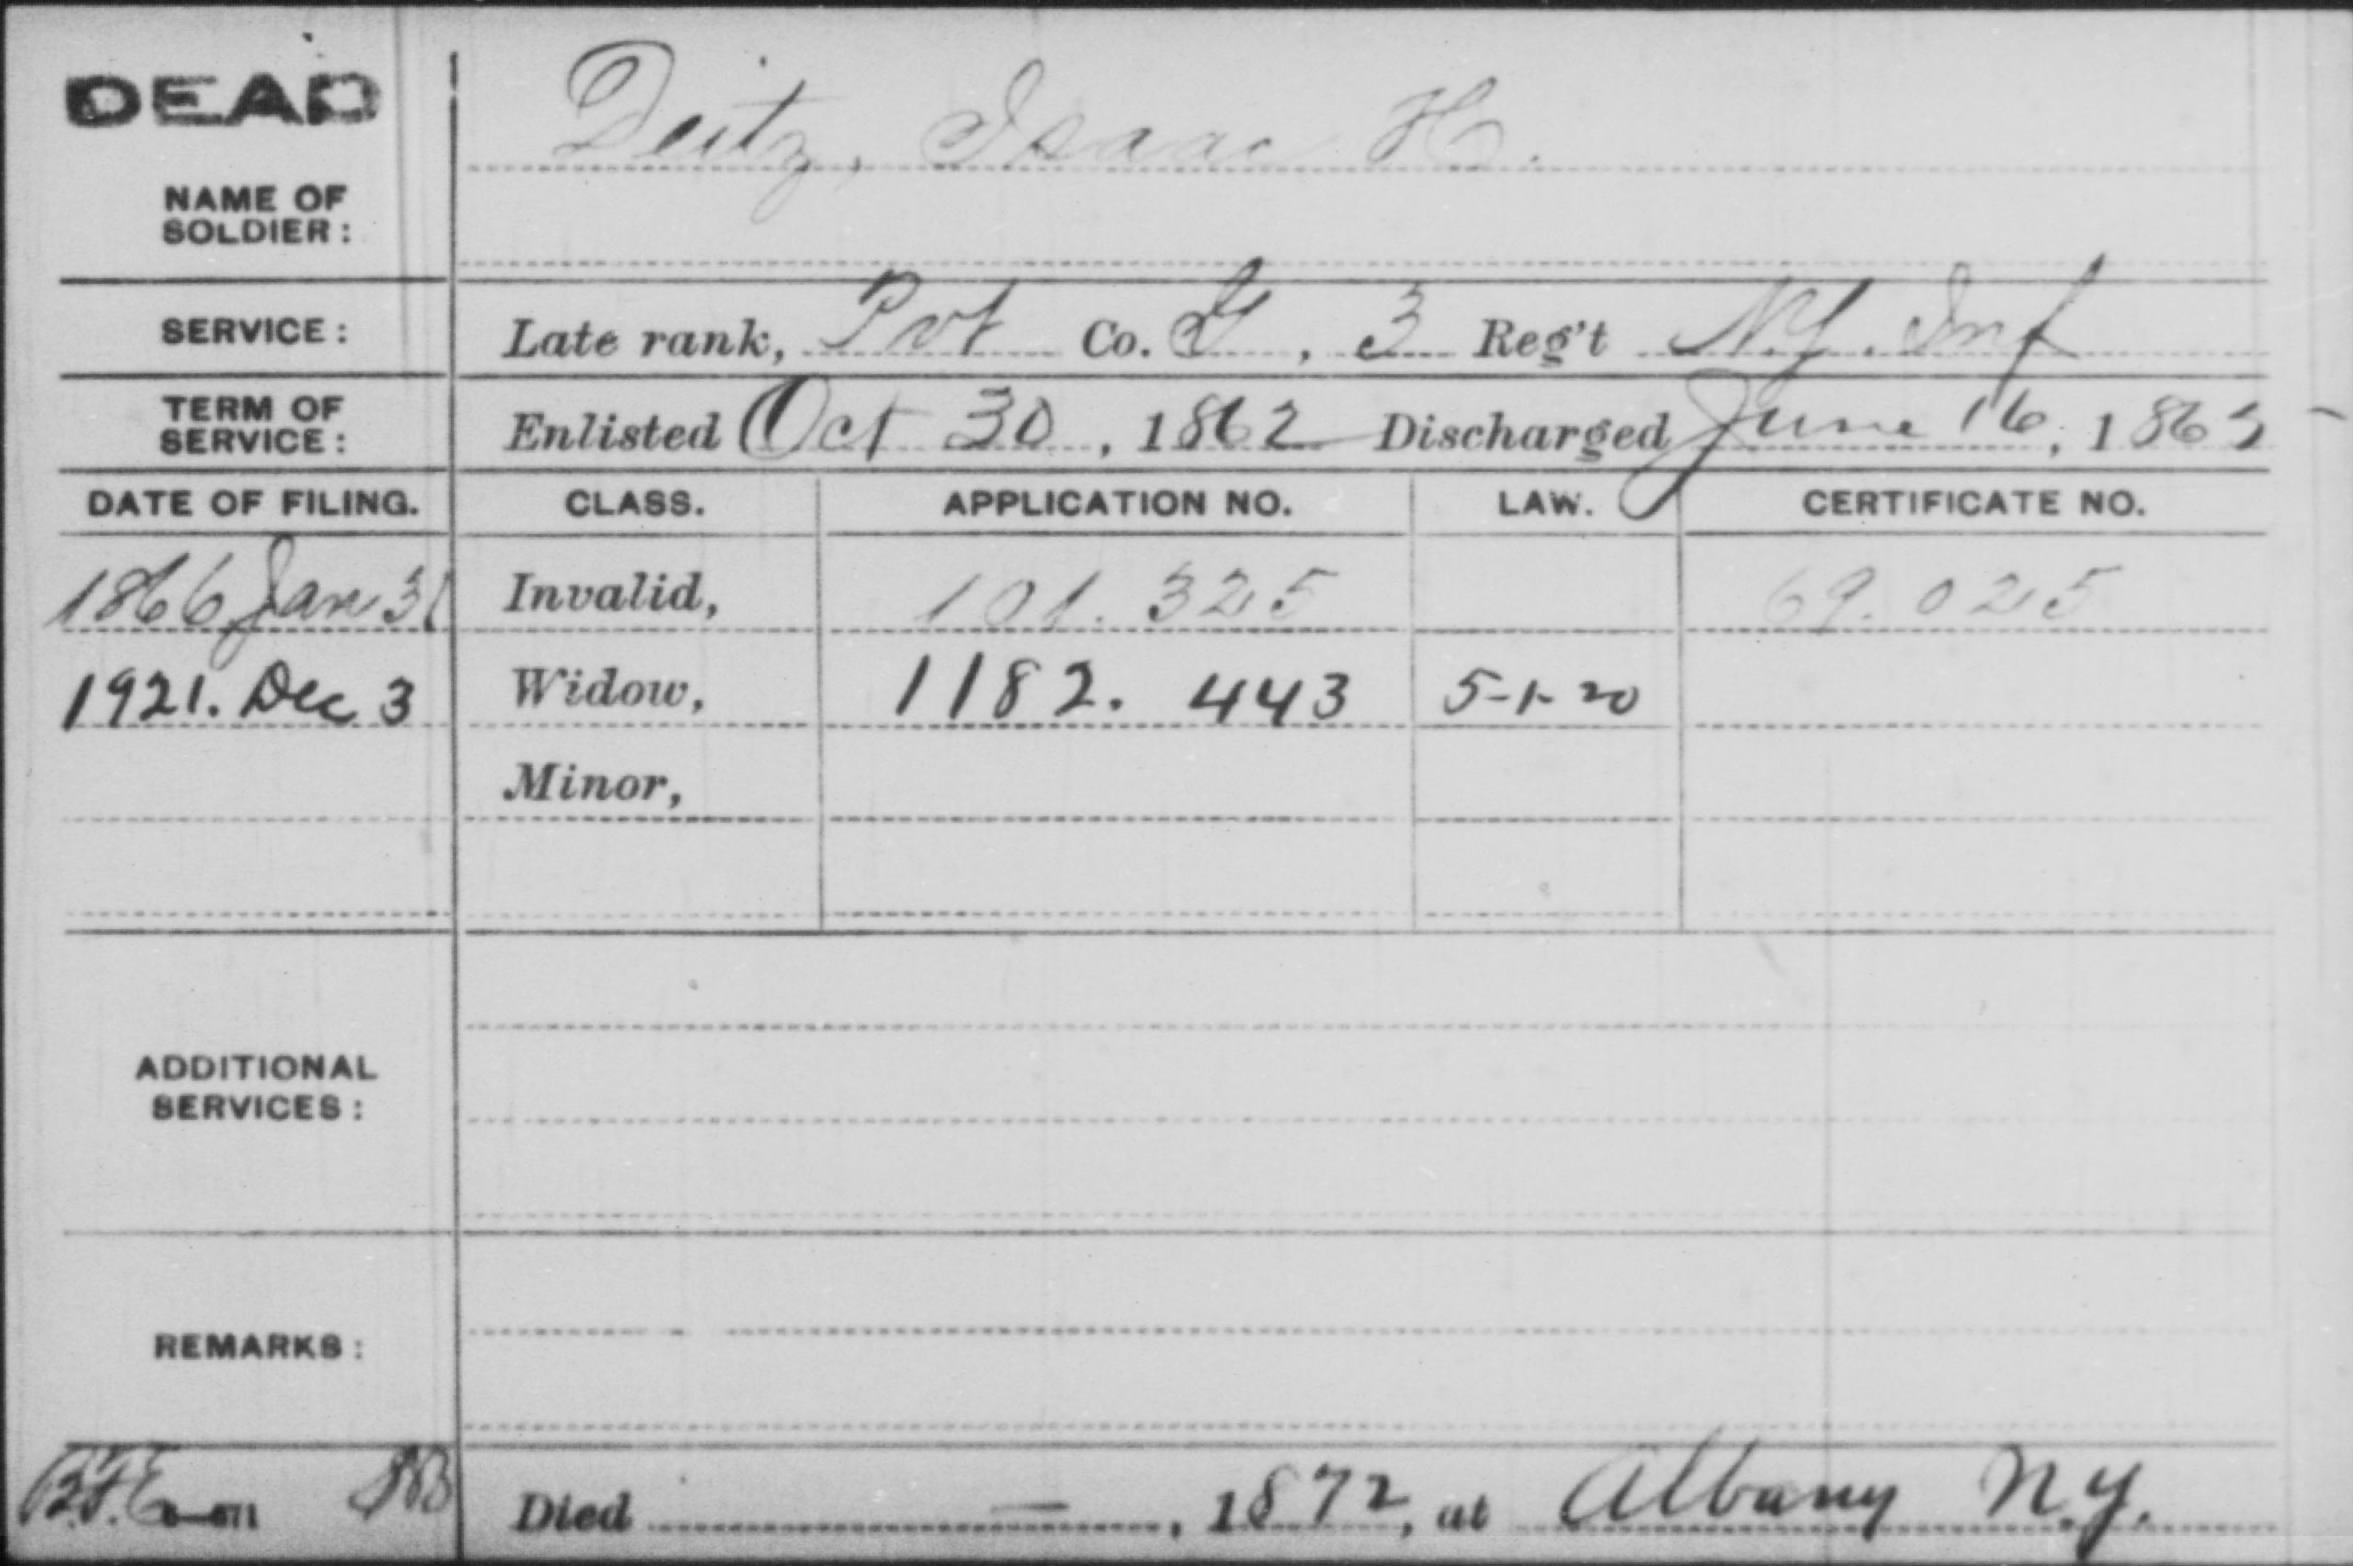 DEAD
NAME OF SOLDIER: Deitz, Isaac H.
SERVICE: Late rank, Pvt Co. G, 3 Reg't N.Y. Inf
TERM OF SERVICE: Enlisted Oct 30, 1862 Discharged June 16, 1865
DATE OF FILING. CLASS. APPLICATION NO. LAW. CERTIFICATE NO.
1866 Jan 31 Invalid, 101.325 69.025
1921. Dec 3 Widow, 1182. 443 5-1-20
Minor,
ADDITIONAL SERVICES:
REMARKS:
Died —, 1872, at Albany N.Y.